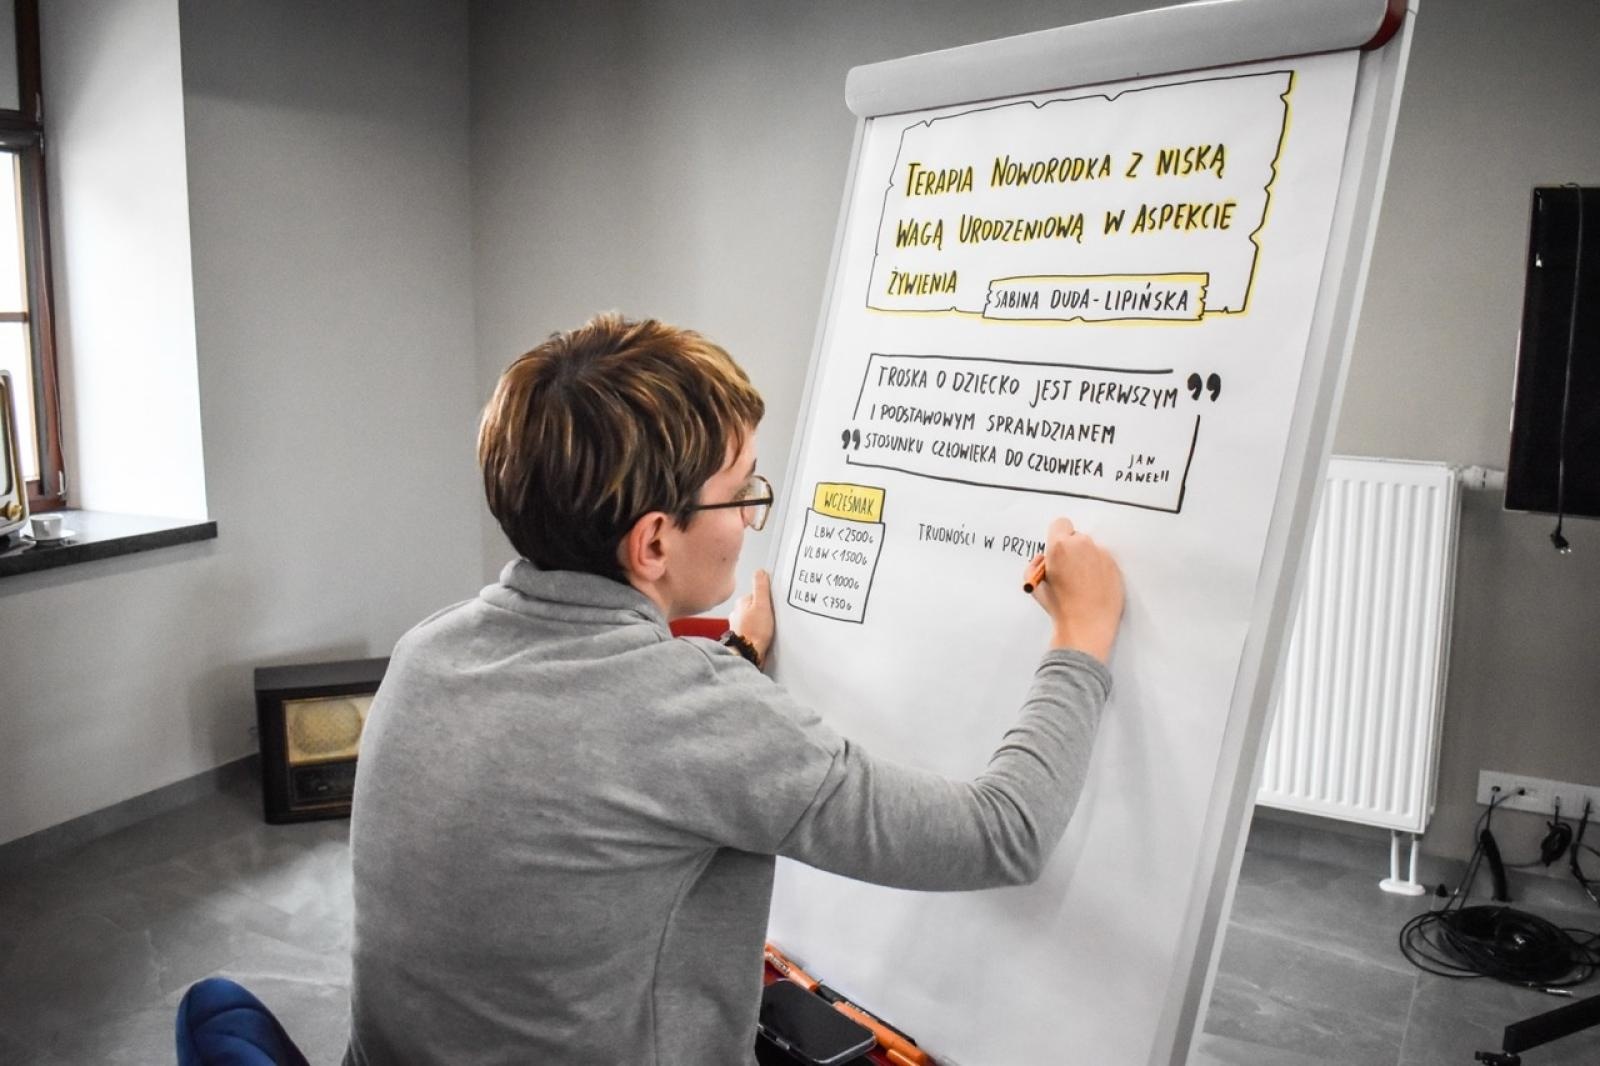 TERAPIA NOWORODKA Z NISKĄ
WAGĄ URODZENIOWĄ W ASPEKCIE
ŻYWIENIA
SABINA DUDA-LIPIŃSKA
TROSKA O DZIECKO JEST PIERWSZYM ”
I PODSTAWOWYM SPRAWDZIANEM
” STOSUNKU CZŁOWIEKA DO CZŁOWIEKA
JAN
PAWEŁ II
WCZEŚNIAK
LBW <2500G
VLBW <1500G
ELBW <1000G
ILBW <750G
TRUDNOŚCI W PRZYJM